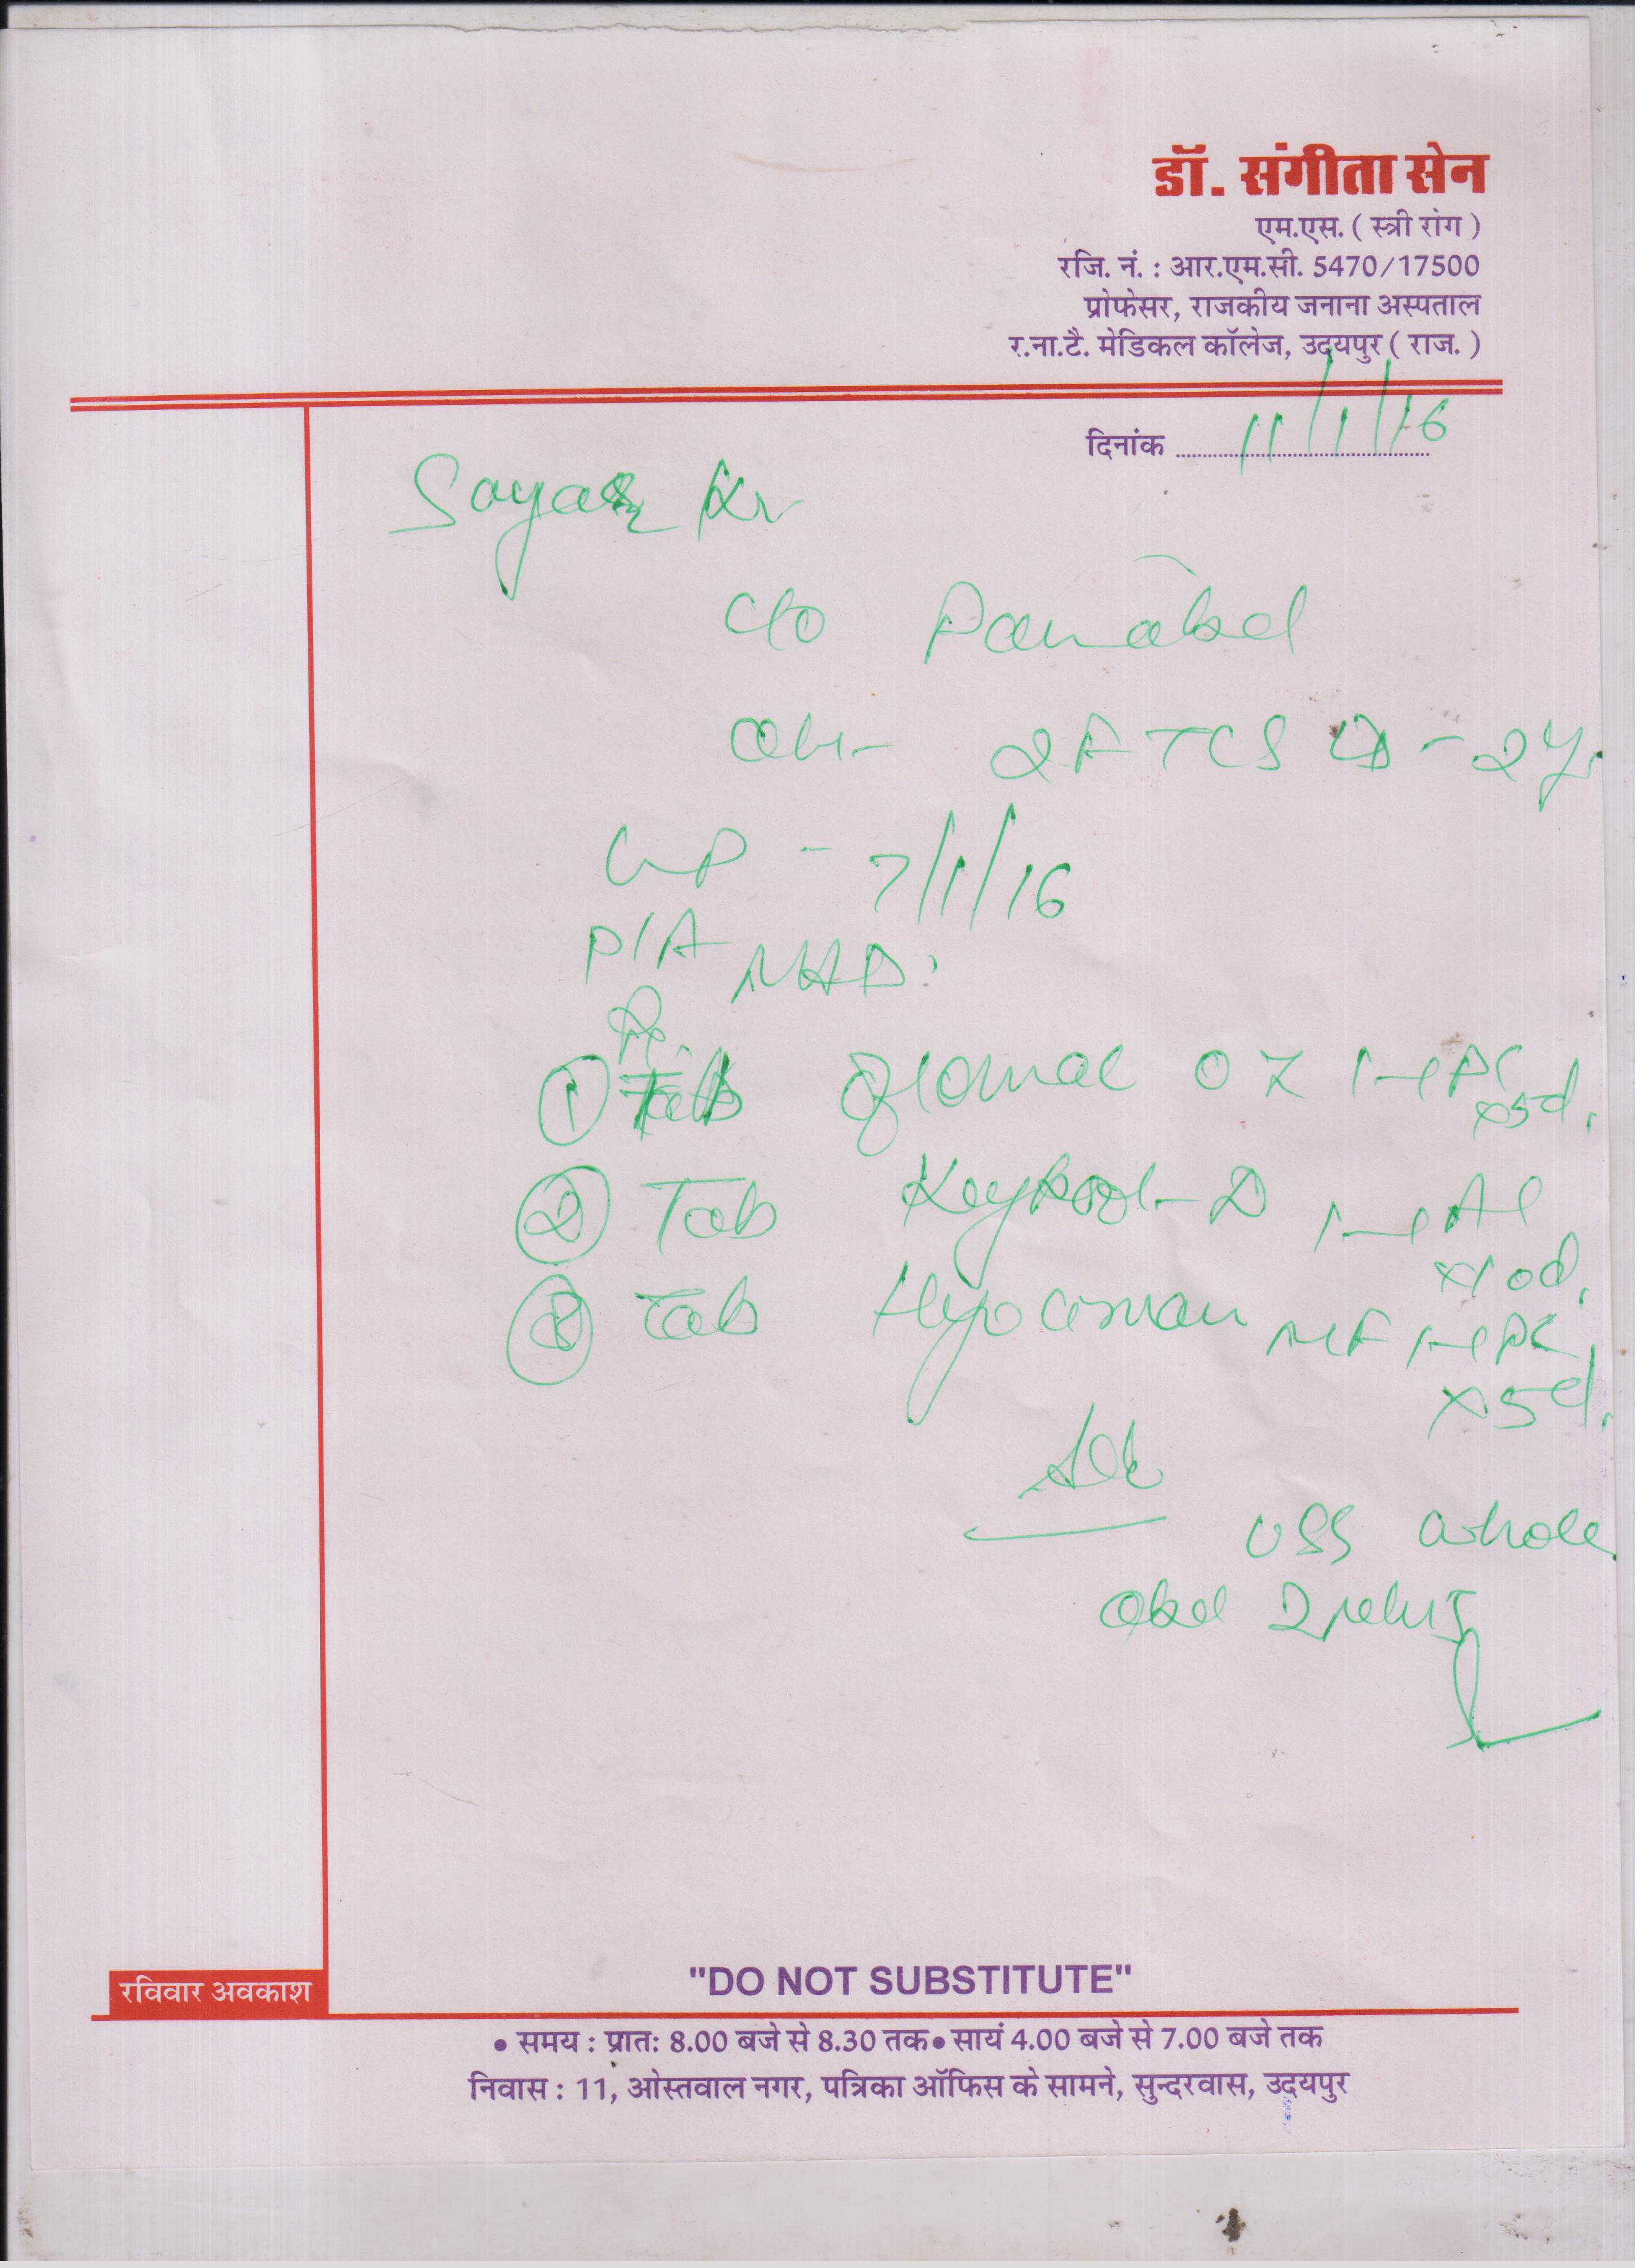 डॉ. संगीता सेन
एम.एस. ( स्त्री रांग )
रजि. नं. : आर.एम.सी. 5470/17500
प्रोफेसर, राजकीय जनाना अस्पताल
र.ना.टै. मेडिकल कॉलेज, उदयपुर ( राज. )
दिनांक 11/1/16
Kr
c/o Pain abd
2 FTCS - 2 yr
LMP - 7/1/16
P/A NAD
Rx
① Tab OZ 1-1 PC x5d.
② Tab -D 1-1 AC x10d.
Tab MF 1-1 PC x5d.
Adv
USG whole
abd
"DO NOT SUBSTITUTE"
रविवार अवकाश
• समय : प्रातः 8.00 बजे से 8.30 तक • सायं 4.00 बजे से 7.00 बजे तक
निवास : 11, ओस्तवाल नगर, पत्रिका ऑफिस के सामने, सुन्दरवास, उदयपुर